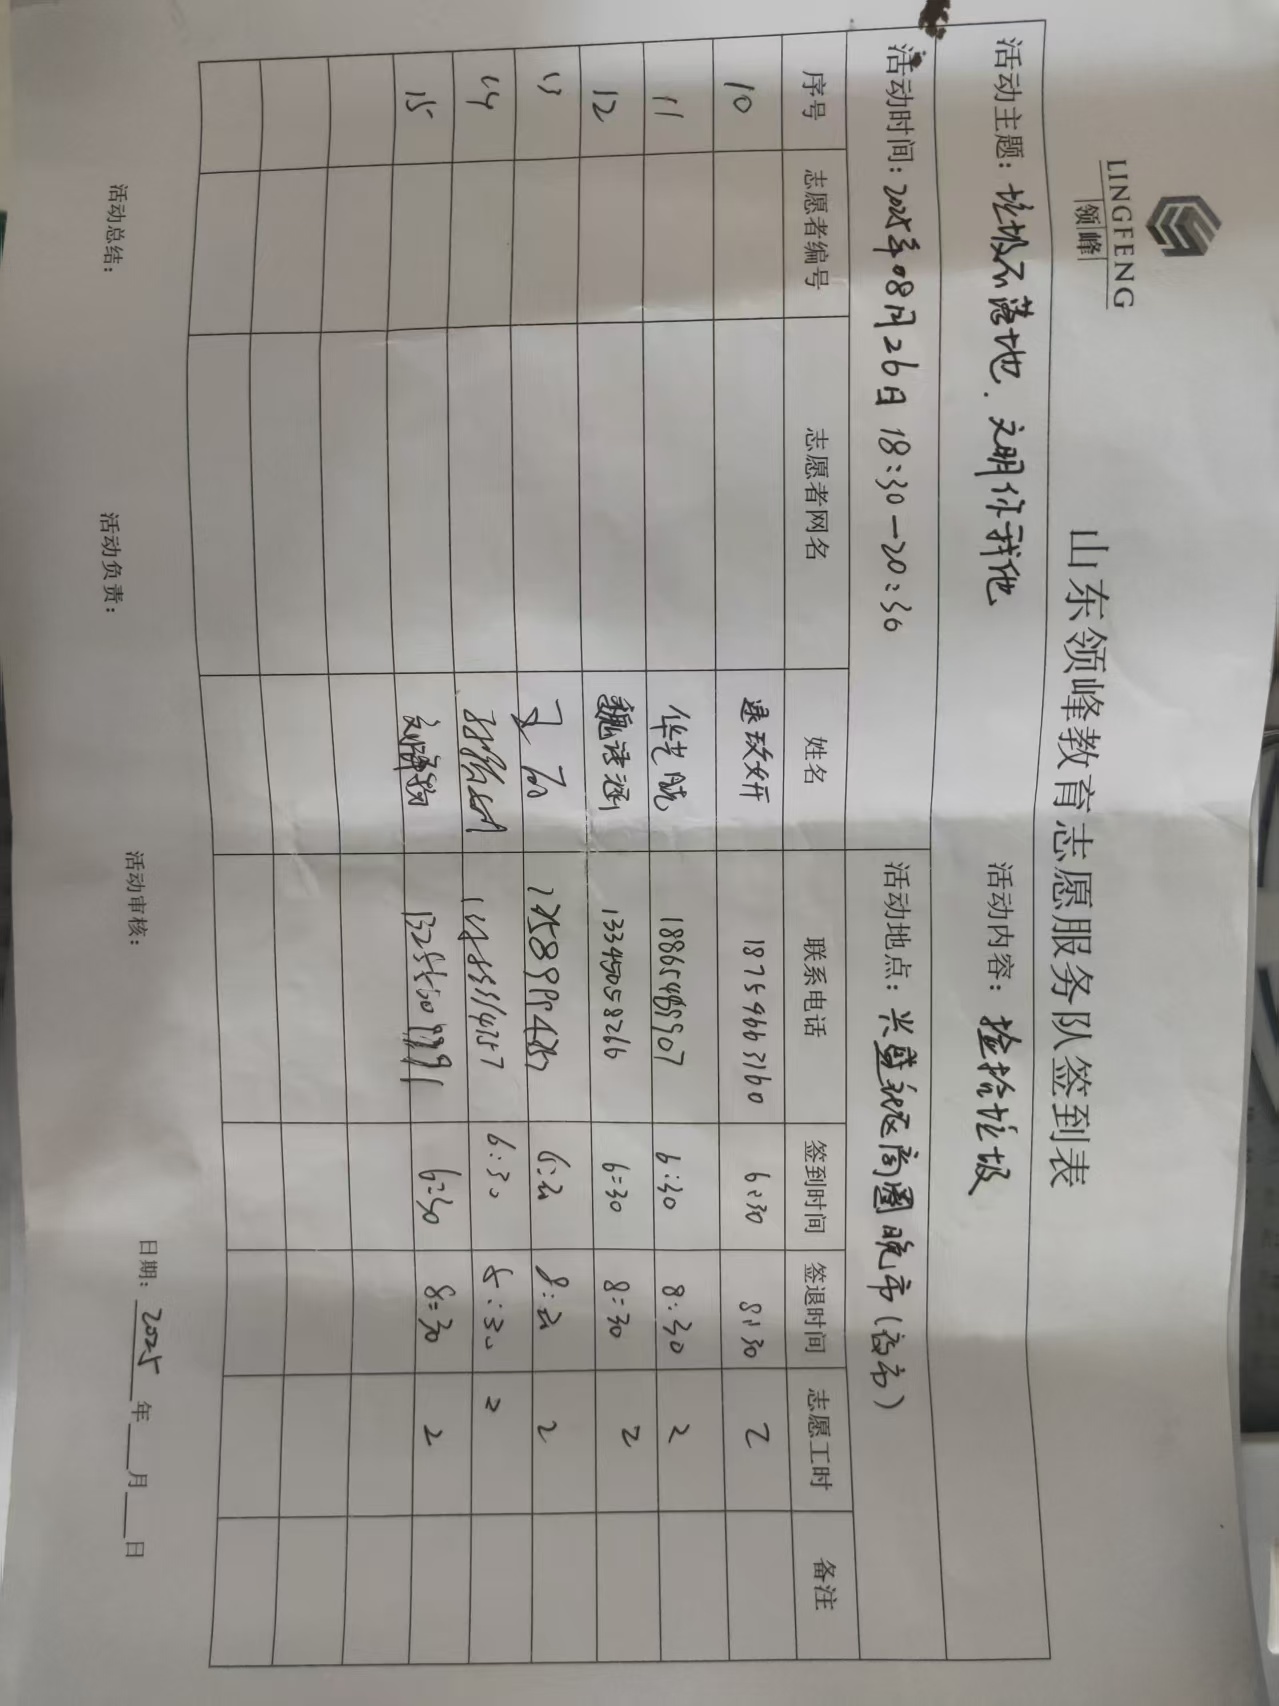 LINGFENG
领峰
山东领峰教育志愿服务队签到表
活动主题：垃圾不落地．文明你我他 活动内容：捡拾垃圾
活动时间：2025年08月26日 18:30—20:30 活动地点：兴盛社区商圈晚市(夜市)
序号 志愿者编号 志愿者网名 姓名 联系电话 签到时间 签退时间 志愿工时 备注
10 18759663160 6:30 8:30 2
11 6:30 8:30 2
12 魏诗涵 13345058266 6:30 8:30 2
13 6:30 8:30 2
14 6:30 8:30 2
15 6:30 8:30 2
活动总结： 活动负责： 活动审核： 日期：2025年 月 日